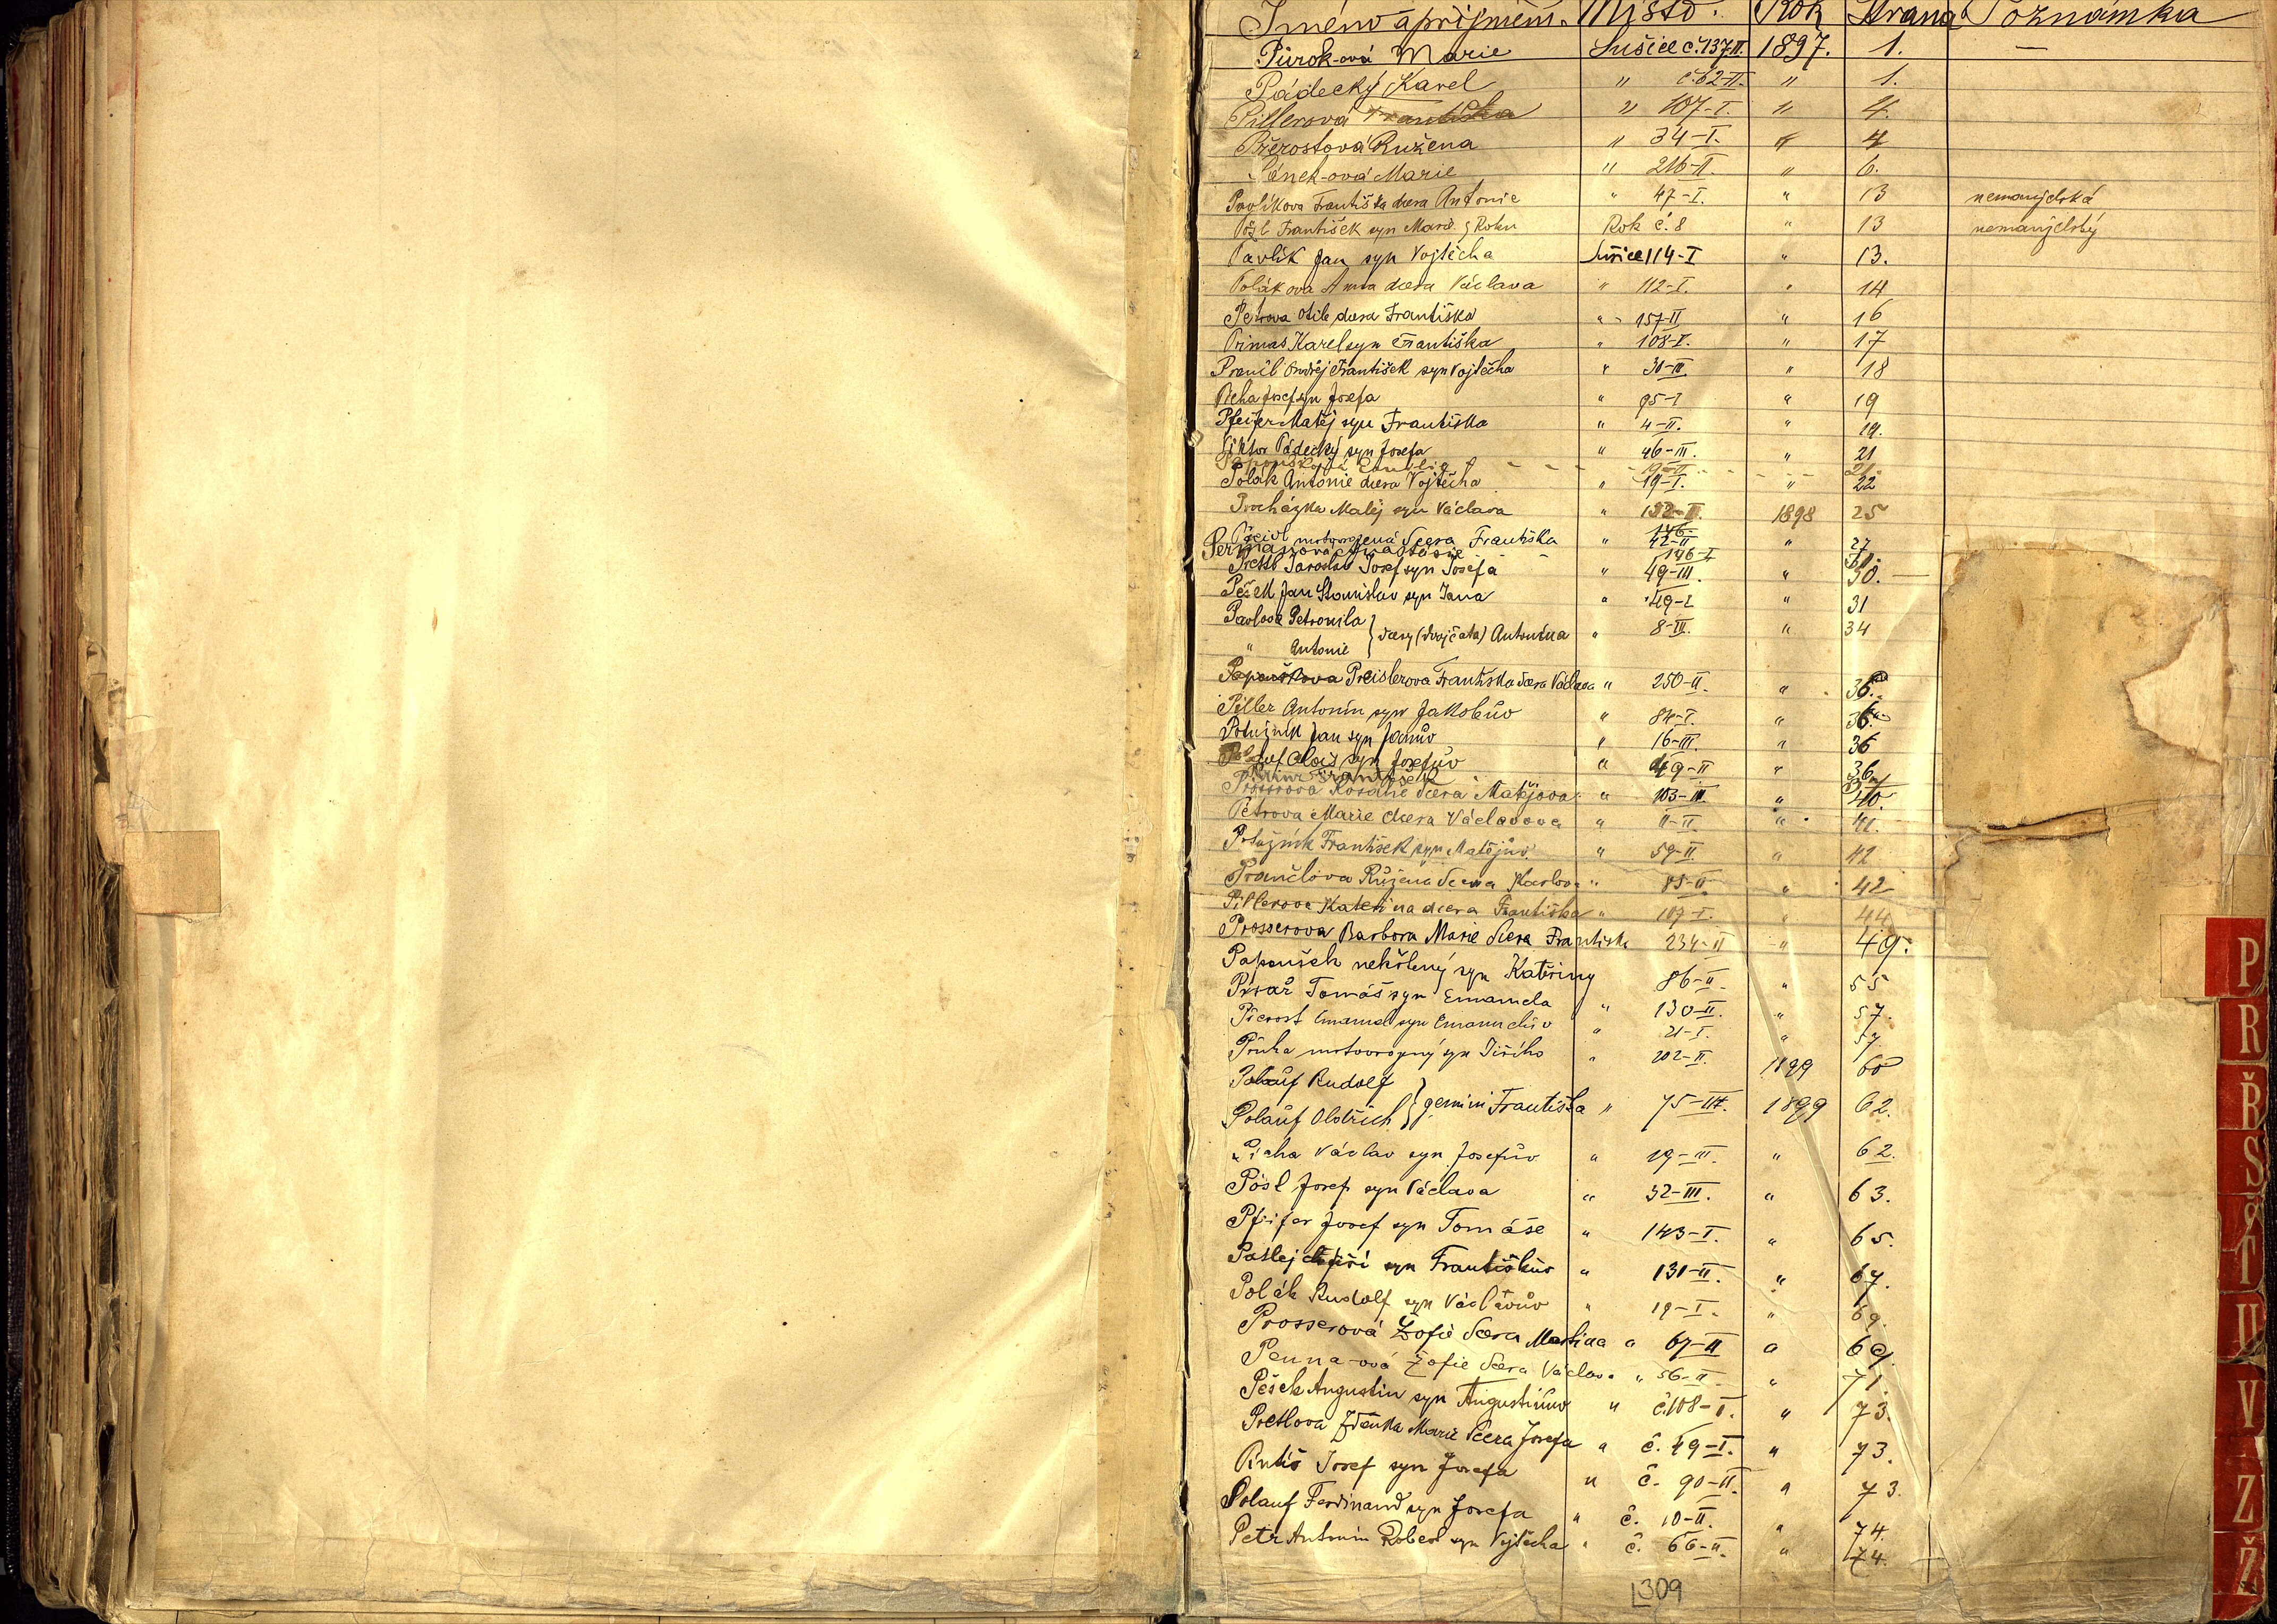 Jméno a příjmení. Místo. Rok Strana Poznámka
Půrok-ová Marie Sušice č. 137 II. 1897. 1. —
Pádecký Karel " č. 62-II. " 1.
Pillerová Františka " 107-I. " 4.
Přerostová Růžena " 34-I. " 4
Pánek-ová Marie " 216-II. " 6.
Pavlíkova Františka dcera Antonie " 47-I. " 13 nemanželská
František syn Marie z Roku Rok č. 8 " 13 nemanželský
Pavlík Jan syn Vojtěcha Sušice 114-I " 13.
Polákova Anna dcera Václava " 112-I. " 14
Petrova Otile dcera Františka " 157-II " 16
Primas Karel syn Františka " 108-I. " 17
Prančl Ondřej František syn Vojtěcha " 30-III. " 18
Pícha Josef syn Josefa " 95-I " 19
Pfeifer Matěj syn Františka " 4-II. " 19.
Viktor Pádecký syn Josefa " 46-III. " 21
Emilie 19-II 21.
Polák Antonie dcera Vojtěcha " 19-I. " 22
Procházka Matěj syn Václava " 132-II. 1898 25
mrtvorozená dcera Františka " 42-II " 27
146-I
Pretl Jaroslav Josef syn Josefa " 49-III. " 30. —
Pešek Jan Stanislav syn Jana " 49-I " 31
Pavlova Petronila
" Antonie } dcery (dvojčata) Antonína " 8-III. " 34
Papoušková Preislerova Františka dcera Václava " 250-II. " 36.
Piller Antonín syn Jakobův " 84-I. " 36.
Potužník Jan syn Janův " 16-III. " 36
Alois syn Josefův " 49-II " 36
František 37
Prosserova Rosalie dcera Matějova " 103-III. " 40.
Petrova Marie dcera Václavova " 11-II " 41.
Potužník František syn Matějův. " 59-II " 42
Prančlova Růžena dcera Karlova " 85-II " 42
Pillerova Kateřina dcera Františka " 107-I. " 44
Prosserova Barbora Marie dcera Františka 234-II " 49.
Papoušek nekřtěný syn Kateřiny 86-II. " 55
Tomáš syn Emanuela " 130-II. " 57.
Přerost Emanuel syn Emanuelův " 21-I. " 57.
Průha mrtvorozený syn Jiřího " 202-II. 1899 60
Polauf Rudolf
Polauf Oldřich } gemini Františka " 75-III. 1899 62.
Pícha Václav syn Josefův " 19-III. " 62.
Pösl Josef syn Václava " 32-III. " 63.
Pfeifer Josef syn Tomáše " 143-I. " 65.
Jiří syn Františkův " 131-II. " 67.
Polák Rudolf syn Václavův " 19-I. " 69.
Prosserová Žofie dcera Martina " 67-II " 69.
Penna-ová Žofie dcera Václava " 56-II. " 71.
Pešek Augustin syn Augustinův " č. 108-I. " 73.
Pretlova Zdeňka Marie dcera Josefa " č. 49-I. " 73.
Pintíř Josef syn Josefa " č. 90-II. " 73.
Polauf Ferdinand syn Josefa " č. 10-II. " 74.
Petr Antonín Robert syn Vojtěcha " č. 66-II. " 74.
309
P
R
Ř
S
Š
T
U
V
Z
Ž